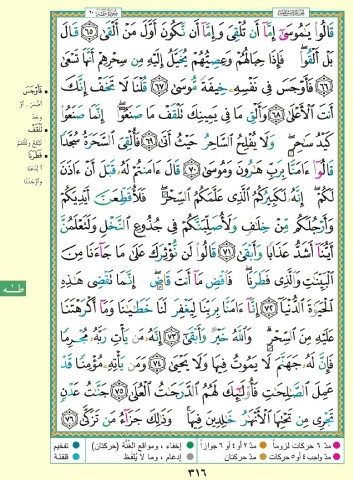 قَالُوا۟ يَـٰمُوسَىٰٓ إِمَّآ أَن تُلْقِىَ وَإِمَّآ أَن نَّكُونَ أَوَّلَ مَنْ أَلْقَىٰ ٦٥ قَالَ
بَلْ أَلْقُوا۟ ۖ فَإِذَا حِبَالُهُمْ وَعِصِيُّهُمْ يُخَيَّلُ إِلَيْهِ مِن سِحْرِهِمْ أَنَّهَا تَسْعَىٰ
٦٦ فَأَوْجَسَ فِى نَفْسِهِۦ خِيفَةً مُّوسَىٰ ٦٧ قُلْنَا لَا تَخَفْ إِنَّكَ
أَنتَ ٱلْأَعْلَىٰ ٦٨ وَأَلْقِ مَا فِى يَمِينِكَ تَلْقَفْ مَا صَنَعُوٓا۟ ۖ إِنَّمَا صَنَعُوا۟
كَيْدُ سَـٰحِرٍ ۖ وَلَا يُفْلِحُ ٱلسَّاحِرُ حَيْثُ أَتَىٰ ٦٩ فَأُلْقِىَ ٱلسَّحَرَةُ سُجَّدًا
قَالُوٓا۟ ءَامَنَّا بِرَبِّ هَـٰرُونَ وَمُوسَىٰ ٧٠ قَالَ ءَامَنتُمْ لَهُۥ قَبْلَ أَنْ ءَاذَنَ
لَكُمْ ۖ إِنَّهُۥ لَكَبِيرُكُمُ ٱلَّذِى عَلَّمَكُمُ ٱلسِّحْرَ ۖ فَلَأُقَطِّعَنَّ أَيْدِيَكُمْ
وَأَرْجُلَكُم مِّنْ خِلَـٰفٍ وَلَأُصَلِّبَنَّكُمْ فِى جُذُوعِ ٱلنَّخْلِ وَلَتَعْلَمُنَّ
أَيُّنَآ أَشَدُّ عَذَابًا وَأَبْقَىٰ ٧١ قَالُوا۟ لَن نُّؤْثِرَكَ عَلَىٰ مَا جَآءَنَا مِنَ
ٱلْبَيِّنَـٰتِ وَٱلَّذِى فَطَرَنَا ۖ فَٱقْضِ مَآ أَنتَ قَاضٍ ۖ إِنَّمَا تَقْضِى هَـٰذِهِ
ٱلْحَيَوٰةَ ٱلدُّنْيَآ ٧٢ إِنَّآ ءَامَنَّا بِرَبِّنَا لِيَغْفِرَ لَنَا خَطَـٰيَـٰنَا وَمَآ أَكْرَهْتَنَا
عَلَيْهِ مِنَ ٱلسِّحْرِ ۗ وَٱللَّهُ خَيْرٌ وَأَبْقَىٰٓ ٧٣ إِنَّهُۥ مَن يَأْتِ رَبَّهُۥ مُجْرِمًا
فَإِنَّ لَهُۥ جَهَنَّمَ لَا يَمُوتُ فِيهَا وَلَا يَحْيَىٰ ٧٤ وَمَن يَأْتِهِۦ مُؤْمِنًا قَدْ
عَمِلَ ٱلصَّـٰلِحَـٰتِ فَأُو۟لَـٰٓئِكَ لَهُمُ ٱلدَّرَجَـٰتُ ٱلْعُلَىٰ ٧٥ جَنَّـٰتُ عَدْنٍ
تَجْرِى مِن تَحْتِهَا ٱلْأَنْهَـٰرُ خَـٰلِدِينَ فِيهَا ۚ وَذَٰلِكَ جَزَآءُ مَن تَزَكَّىٰ ٧٦
فَأَوْجَسَ
أضمر، أو
وجد
تَلْقَفْ
فَطَرَنَا
طه
مدّ ٦ حركات لزوماً مدّ ٢ أو ٤ أو ٦ جوازاً إخفاء، ومواقع الغُنَّة (حركتان) تفخيم
مدّ واجب ٤ أو ٥ حركات مدّ حركتان إدغام، وما لا يُلفَظ قلقلة
٣١٦